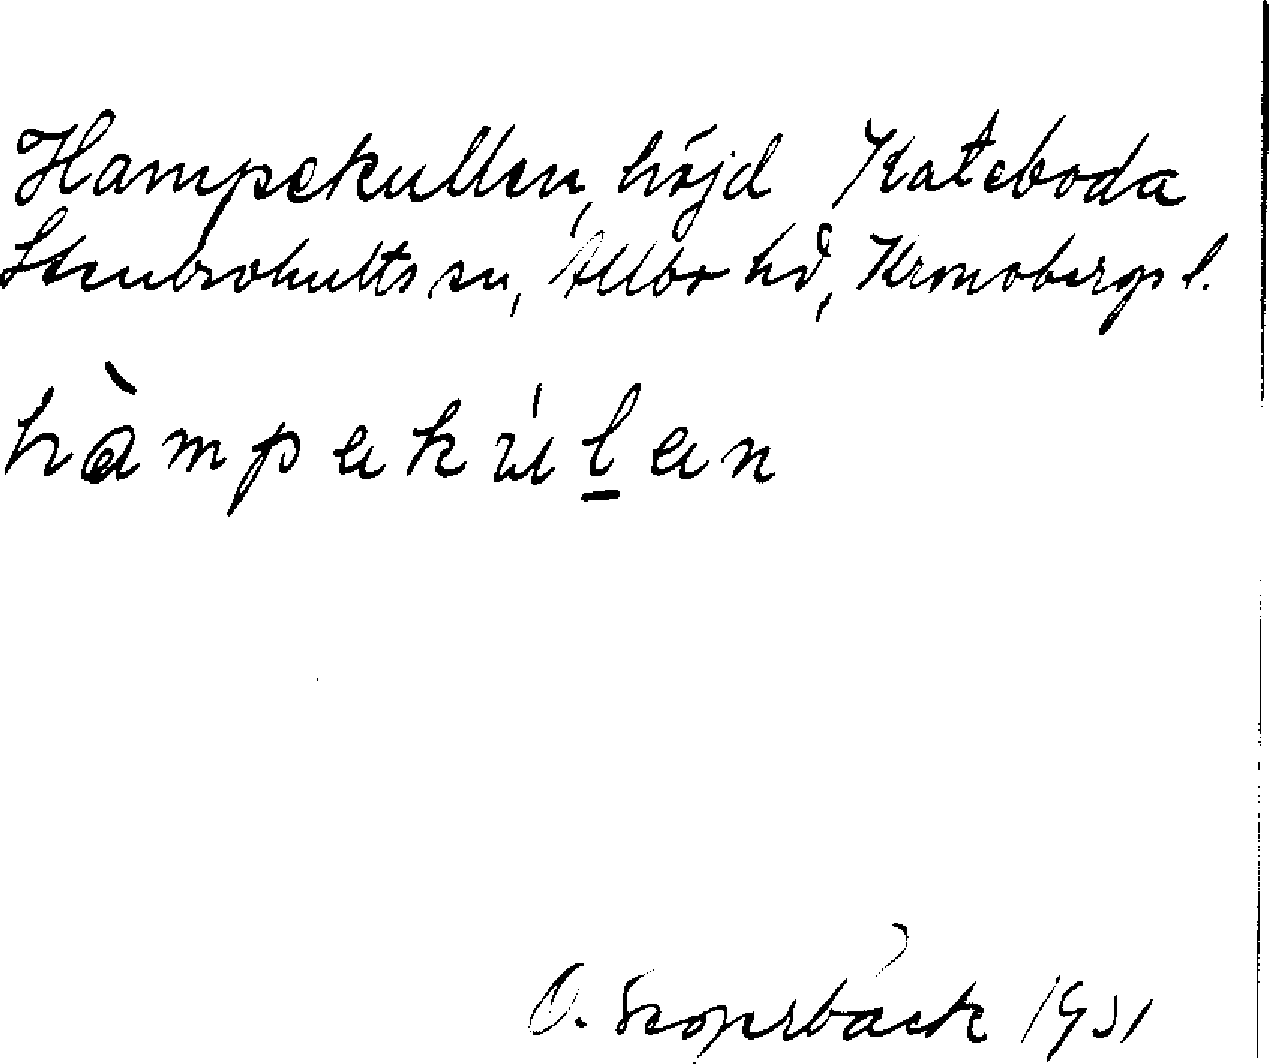 Hampekullen, höjd Kateboda
Stenbrohults sn, Allbo hd, Kronobergs l.
hàmpəkúl̠ən
O. 1931